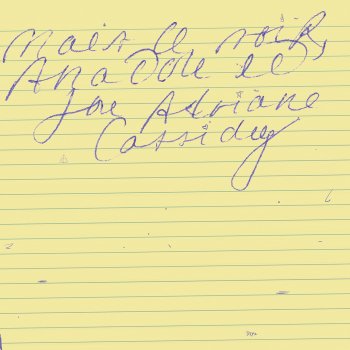 Mais le soir,
Anatole et
Joe Adriane
Cassidy